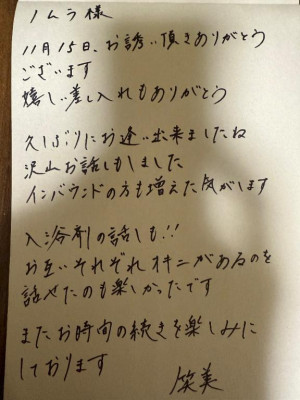 ノムラ様
11月15日、お誘い頂きありがとう
ございます
嬉しい差し入れもありがとう
久しぶりにお逢い出来ましたね
沢山お話しもしました
インバウンドの方も増えた気がします
入浴剤の話しも!!
お互いそれぞれオキニがあるのを
話せたのも楽しかったです
またお時間の続きを楽しみに
しております
笑美